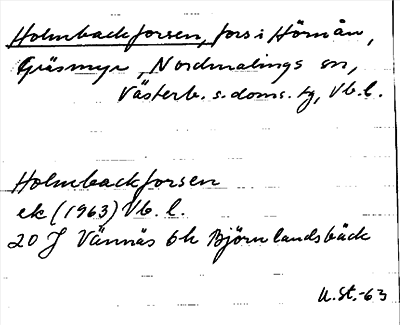 Holmbackforsen, fors i Hörnån,
Gräsmyr, Nordmalings sn,
Västerb. s. doms. tg, Vb. l.
Holmbackforsen
ek (1963) Vb. l.
20 J Vännäs 6h Björnlandsbäck
U.St.-63